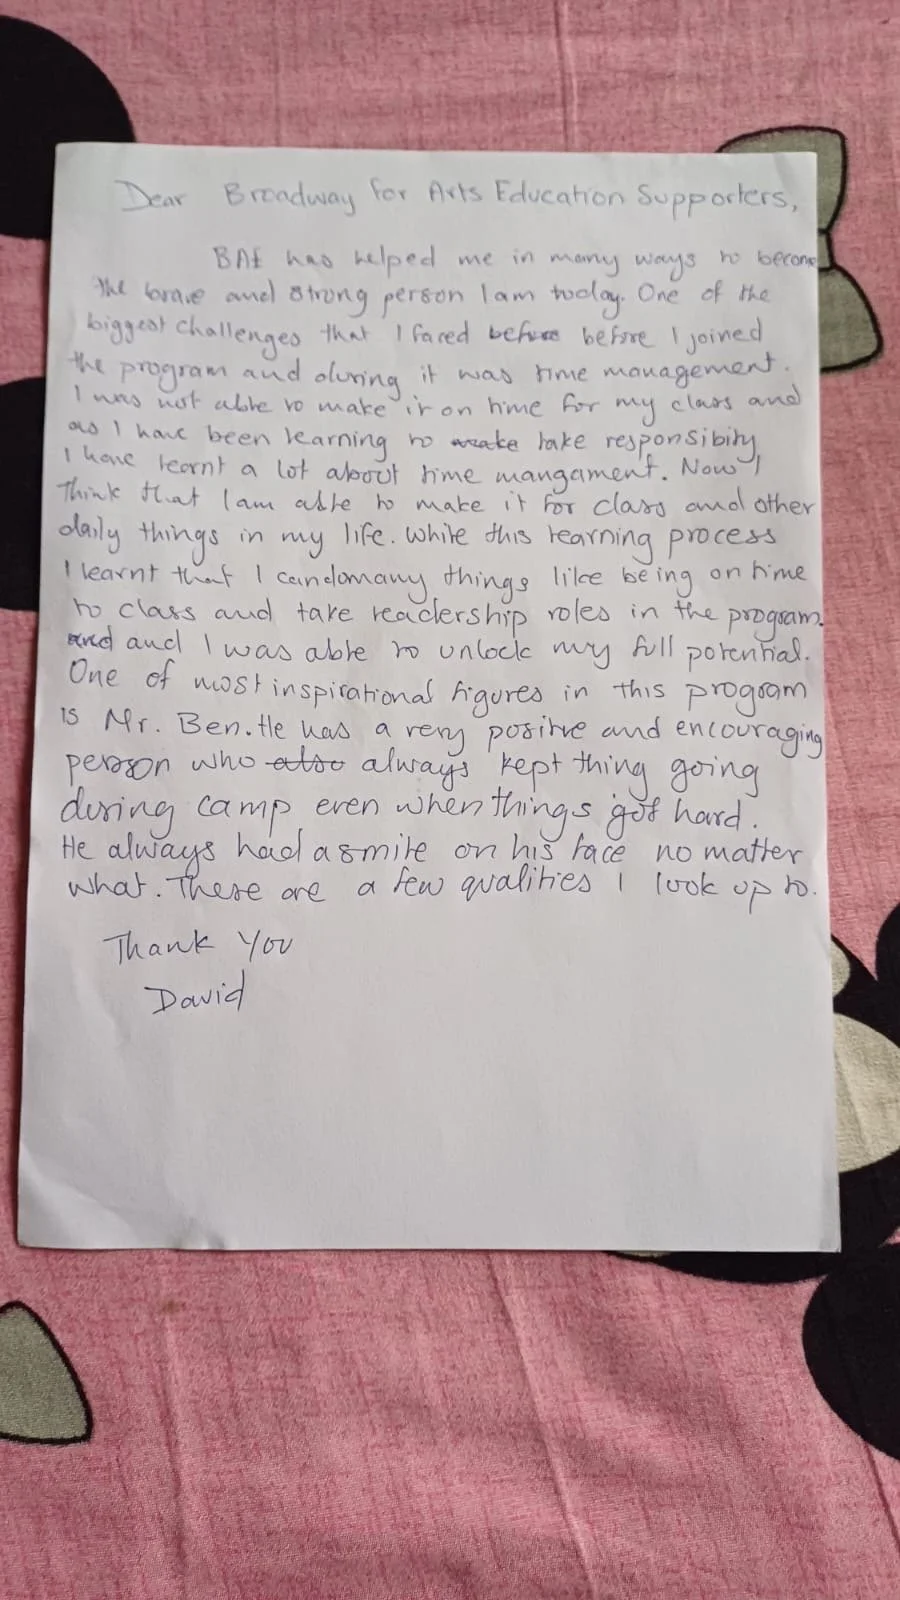 Dear Broadway for Arts Education Supporters,
BAE has helped me in many ways to become
the brave and strong person I am today. One of the
biggest challenges that I faced before before I joined
the program and during it was time management.
I was not able to make it on time for my class and
as I have been learning to make take responsibity
I have learnt a lot about time mangament. Now I
think that I am able to make it for class and other
daily things in my life. While this learning process
I learnt that I can do many things like being on time
to class and take leadership roles in the program.
and and I was able to unlock my full potential.
One of most inspirational figures in this program
is Mr. Ben. He has a very positive and encouraging
person who also always kept thing going
during camp even when things got hard.
He always had a smile on his face no matter
what. These are a few qualities I look up to.
Thank You
David